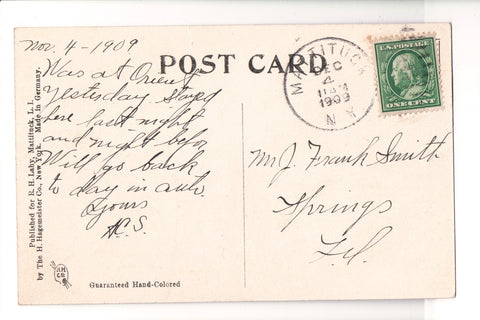 Nov. 4-1909
POST CARD
Was at Orient
yesterday stayed
here last night
and night before
Will go back
to day in auto.
Yours
H.S.
MATTITUCK
DEC
4
11 AM
1909
N.Y.
U.S. POSTAGE
ONE CENT
Mr J. Frank Smith
Springs
L.I.
Published for E. H. Lahy, Mattituck, L. I.
by The H. Hagemeister Co., New York. Made in Germany.
Guaranteed Hand-Colored